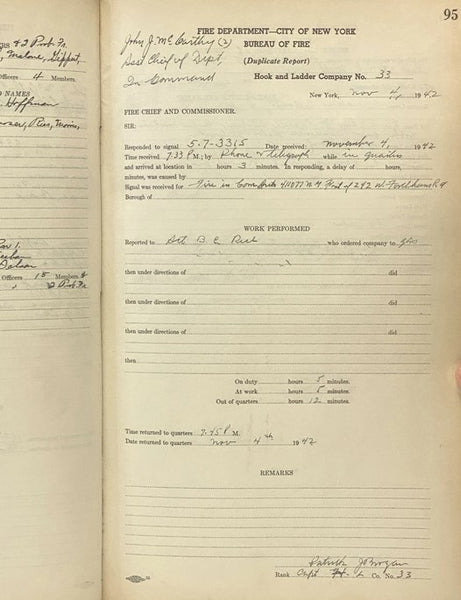 95
FIRE DEPARTMENT—CITY OF NEW YORK
BUREAU OF FIRE
(Duplicate Report)
Hook and Ladder Company No. 33
John J. McCarthy (2)
Asst Chief of Dept.
In Command
New York, Nov 4, 1942
FIRE CHIEF AND COMMISSIONER.
SIR:
Responded to signal 5-7-3315 Date received: November 4, 1942
Time received 7:33 P.M.; by Phone & Telegraph while in Quarters
and arrived at location in hours 3 minutes. In responding, a delay of hours,
minutes, was caused by
Signal was received for Fire in of 242 W. Fordham Rd
Borough of
WORK PERFORMED
Reported to B. C. who ordered company to
then under directions of did
then under directions of did
then under directions of did
then
On duty hours 5 minutes.
At work hours 5 minutes.
Out of quarters hours 12 minutes.
Time returned to quarters 7.45 P M.
Date returned to quarters Nov 4th 1942
REMARKS
Patrick J Brogan
Rank Capt H. & L Co. No. 33
& 2 Prob. Fr.
Malone,
Officers 4 Members.
NAMES
Hoffman
Officers 15 Members &
2 Prob. Fr.